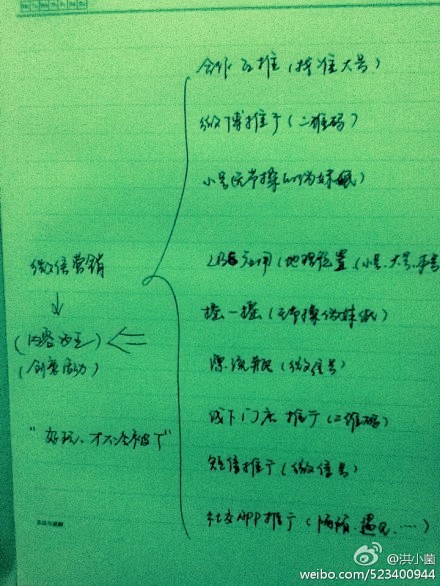 合作互推（搜准大号）
微博推广（二维码）
小号（无节操的伪妹纸）
微信营销
LBS应用（地理位置（小号、大号、
↓
摇一摇（无节操伪妹纸）
（内容为王）
（创意活动）
漂流瓶（微信号）
线下门店推广（二维码）
"好玩、才不会被T"
短信推广（微信号）
社交APP推广（陌陌、遇见、……）
@洪小菌
weibo.com/523400944